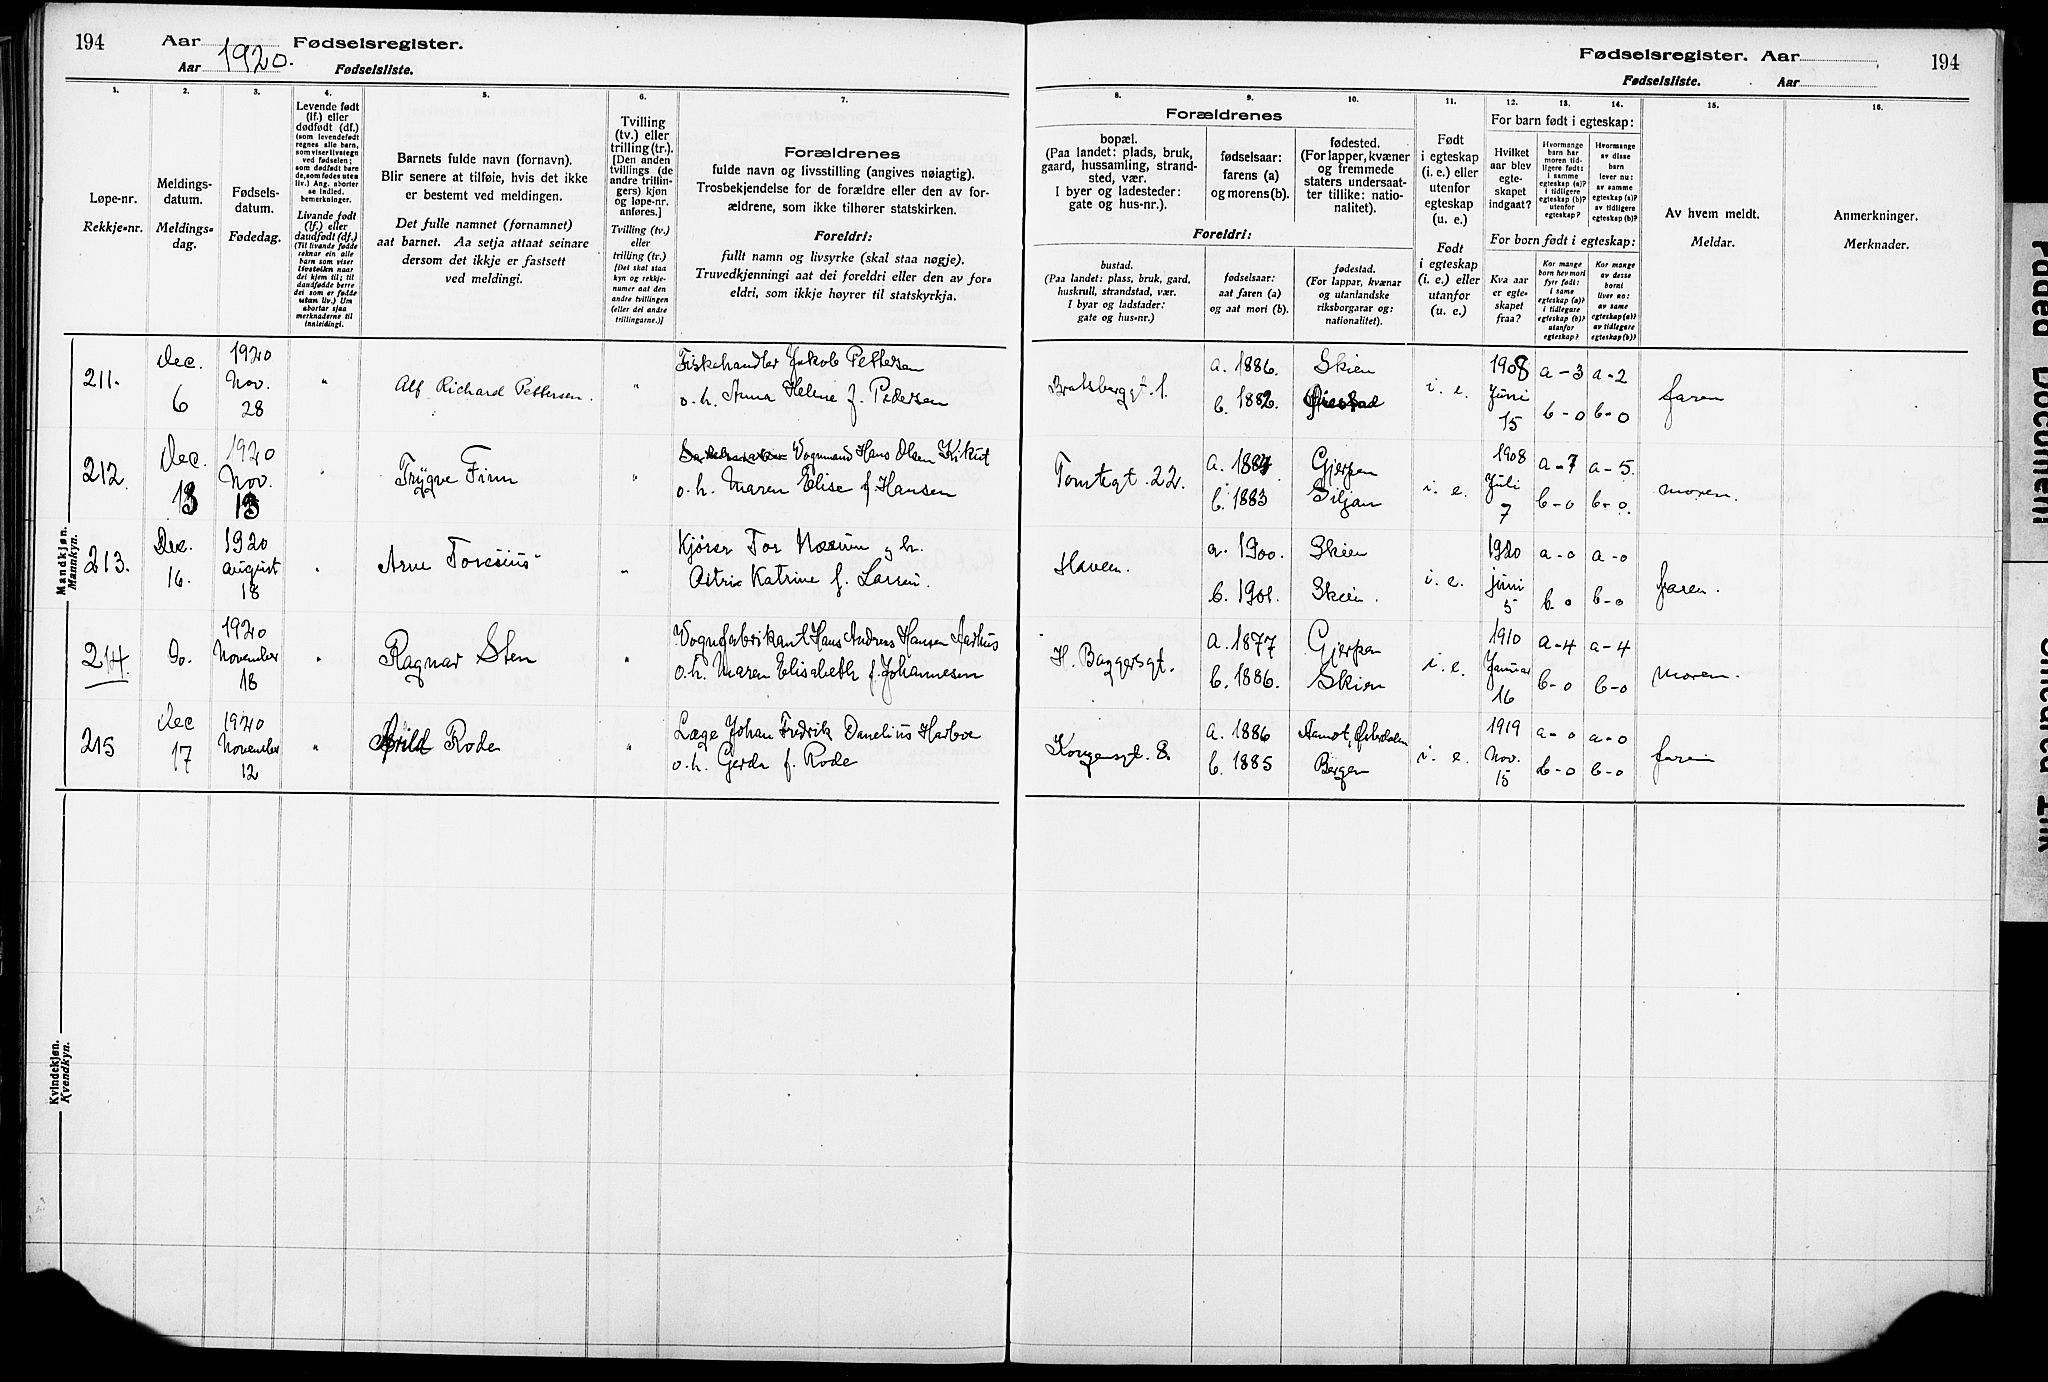 194
Aar 1920. Fødselsregister.
Aar Fødselsliste.
Fødselsregister. Aar
194
Fødselsliste. Aar
1.
Løpe-nr.
Rekkje-nr.
2.
Meldings-
datum.
Meldings-
dag.
3.
Fødsels-
datum.
Fødedag.
4.
Levende født
(lf.) eller
dødfødt (df.)
(som levendefødt
regnes alle barn,
som viser livstegn
ved fødselen;
som dødfødt bar-
de, som fødes uten
liv.) Ang. aborter
se indled.
bemerkninger.
Livande født
(lf.) eller
daudfødt (df.)
(Til livande fødde
reknar ein alle
barn som viser
livsteikn naar
dei kjem til; til
daudfødde berre
dei som er fødde
utan liv.) Um
abortar sjaa
merknaderne til
innleidingi.
5.
Barnets fulde navn (fornavn).
Blir senere at tilføie, hvis det ikke
er bestemt ved meldingen.
Det fulle namnet (fornamnet)
aat barnet. Aa setja attaat seinare
dersom det ikkje er fastsett
ved meldingi.
6.
Tvilling
(tv.) eller
trilling (tr.).
[Den anden
tvillings (de
andre trillin-
gers) kjøn
og løpe-nr.
anføres.]
Tvilling (tv.)
eller
trilling (tr.)
[Det skal staa
kyn og rekkje-
numer aat den
andre tvillingen
(eller dei andre
trillingarne.)]
7.
Forældrenes
fulde navn og livsstilling (angives nøiagtig).
Trosbekjendelse for de forældre eller den av for-
ældrene, som ikke tilhører statskirken.
Foreldri:
fullt namn og livsyrke (skal staa nøgje).
Truvedkjenningi aat dei foreldri eller den av for-
eldri, som ikkje høyrer til statskyrkja.
8.
Forældrenes
bopæl.
(Paa landet: plads, bruk,
gaard, hussamling, strand-
sted, vær.
I byer og ladesteder:
gate og hus-nr.).
Foreldri:
bustad.
(Paa landet: plass, bruk, gard,
huskrull, strandstad, vær.
I byar og ladstader:
gate og hus-nr.)
9.
fødselsaar:
farens (a)
og morens (b).
fødselsaar:
aat faren (a)
og aat mori (b).
10.
fødested.
(For lapper, kvæner
og fremmede
staters undersaat-
ter tillike: natio-
nalitet).
fødestad.
(For lappar, kvænar
og utanlandske
riksborgarar og:
nationalitet).
11.
Født
i egteskap
(i. e.) eller
utenfor
egteskap
(u. e.)
Født
i egteskap
(i. e.) eller
utanfor
(u. e.)
12.
13.
14.
For barn født i egteskap:
Hvilket
aar blev
egte-
skapet
indgaat?
Hvormange
barn har
moren tid-
ligere født:
I samme
egteskap (a)?
i tidligere
egteskap (b)?
utenfor
egteskap?
Hvormange
av disse
barn
lever nu:
av samme
egteskap (a)?
av tidligere
egteskap (b)?
For born født i egteskap:
Kva aar
er egte-
skapet
fraa?
Kor mange
born hev mori
fyrr født:
i same
egteskap (a)?
i tidlegare
egteskap (b)?
utanfor
egteskap?
Kor mange
av desse
borni
liver no:
av same
egteskap (a)?
av tidlegare
egteskap (b)?
15.
Av hvem meldt.
Meldar.
16.
Anmerkninger.
Merknader.
Mandkjøn.
Mannkyn.
211. Dec. 6 1920 Nov. 28 " Alf Richard Pettersen. " Fiskehandler Jakob Pettersen
o. h. Anna Helene f. Pedersen
Bratsbergt. 1. a. 1886. Skien
b. 1882.
i. e. 1908 Juni 15 a-3 b-0 a-2 b-0 faren
212. Dec. 13 1920 Nov. 13 " Trygve Finn " Vognmand Hans Olsen Kikut
o. h. Maren Elise f. Hansen
Tomtegt. 22. a. 1884 Gjerpen
b. 1883 Siljan
i. e. 1908 Juli 7 a-7 b-0 a-5. b-0. moren.
213. Dec. 16. 1920 august 18 " Arne " Kjører Tor og h.
Katrine f. Larsen.
Haven. a. 1900. Skien
b. 1901. Skien.
i. e. 1920 juni 5 a-0 b-0 a-0 b-0 faren.
214. Do. 1920 November 18 " Ragnar Sten " Vognfabrikant Hans Andreas Hansen Aarhus
o. h. Maren Elisabeth f. Johannesen
H. Baggersgt. a. 1877 Gjerpen
b. 1886. Skien
i. e. 1910 Januar 16 a-4 b-0 a-4 b-0 moren.
215 Dec 17 1920 November 12 " Arild Rode " Læge Johan Fredrik Danelius Harboe
o. h. Gerda f. Rode
Kongensgt. 8. a. 1886 Aamot, Østerdalen
b. 1885 Bergen
i. e. 1919 Nov. 15 a-0 b-0 a-0 b-0 faren
Kvindekjøn.
Kvendkyn.
Faded Document